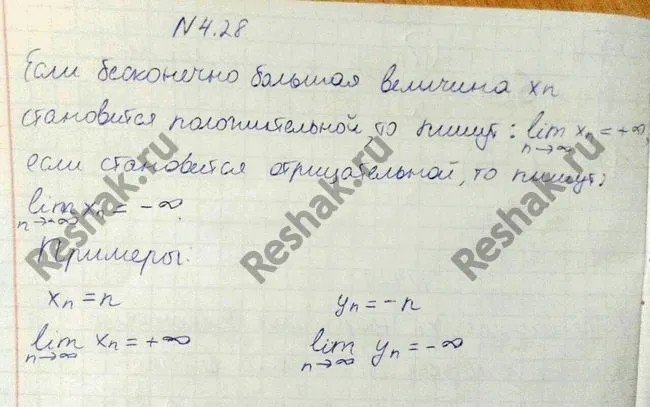 N 4.28
Если бесконечно большая величина xₙ
становится положительной, то пишут: lim xₙ = +∞,
n→∞
если становится отрицательной, то пишут:
lim xₙ = -∞.
n→∞
Примеры:
xₙ = n yₙ = -n
lim xₙ = +∞ lim yₙ = -∞
n→∞ n→∞
Reshak.ru
Reshak.ru
Reshak.ru